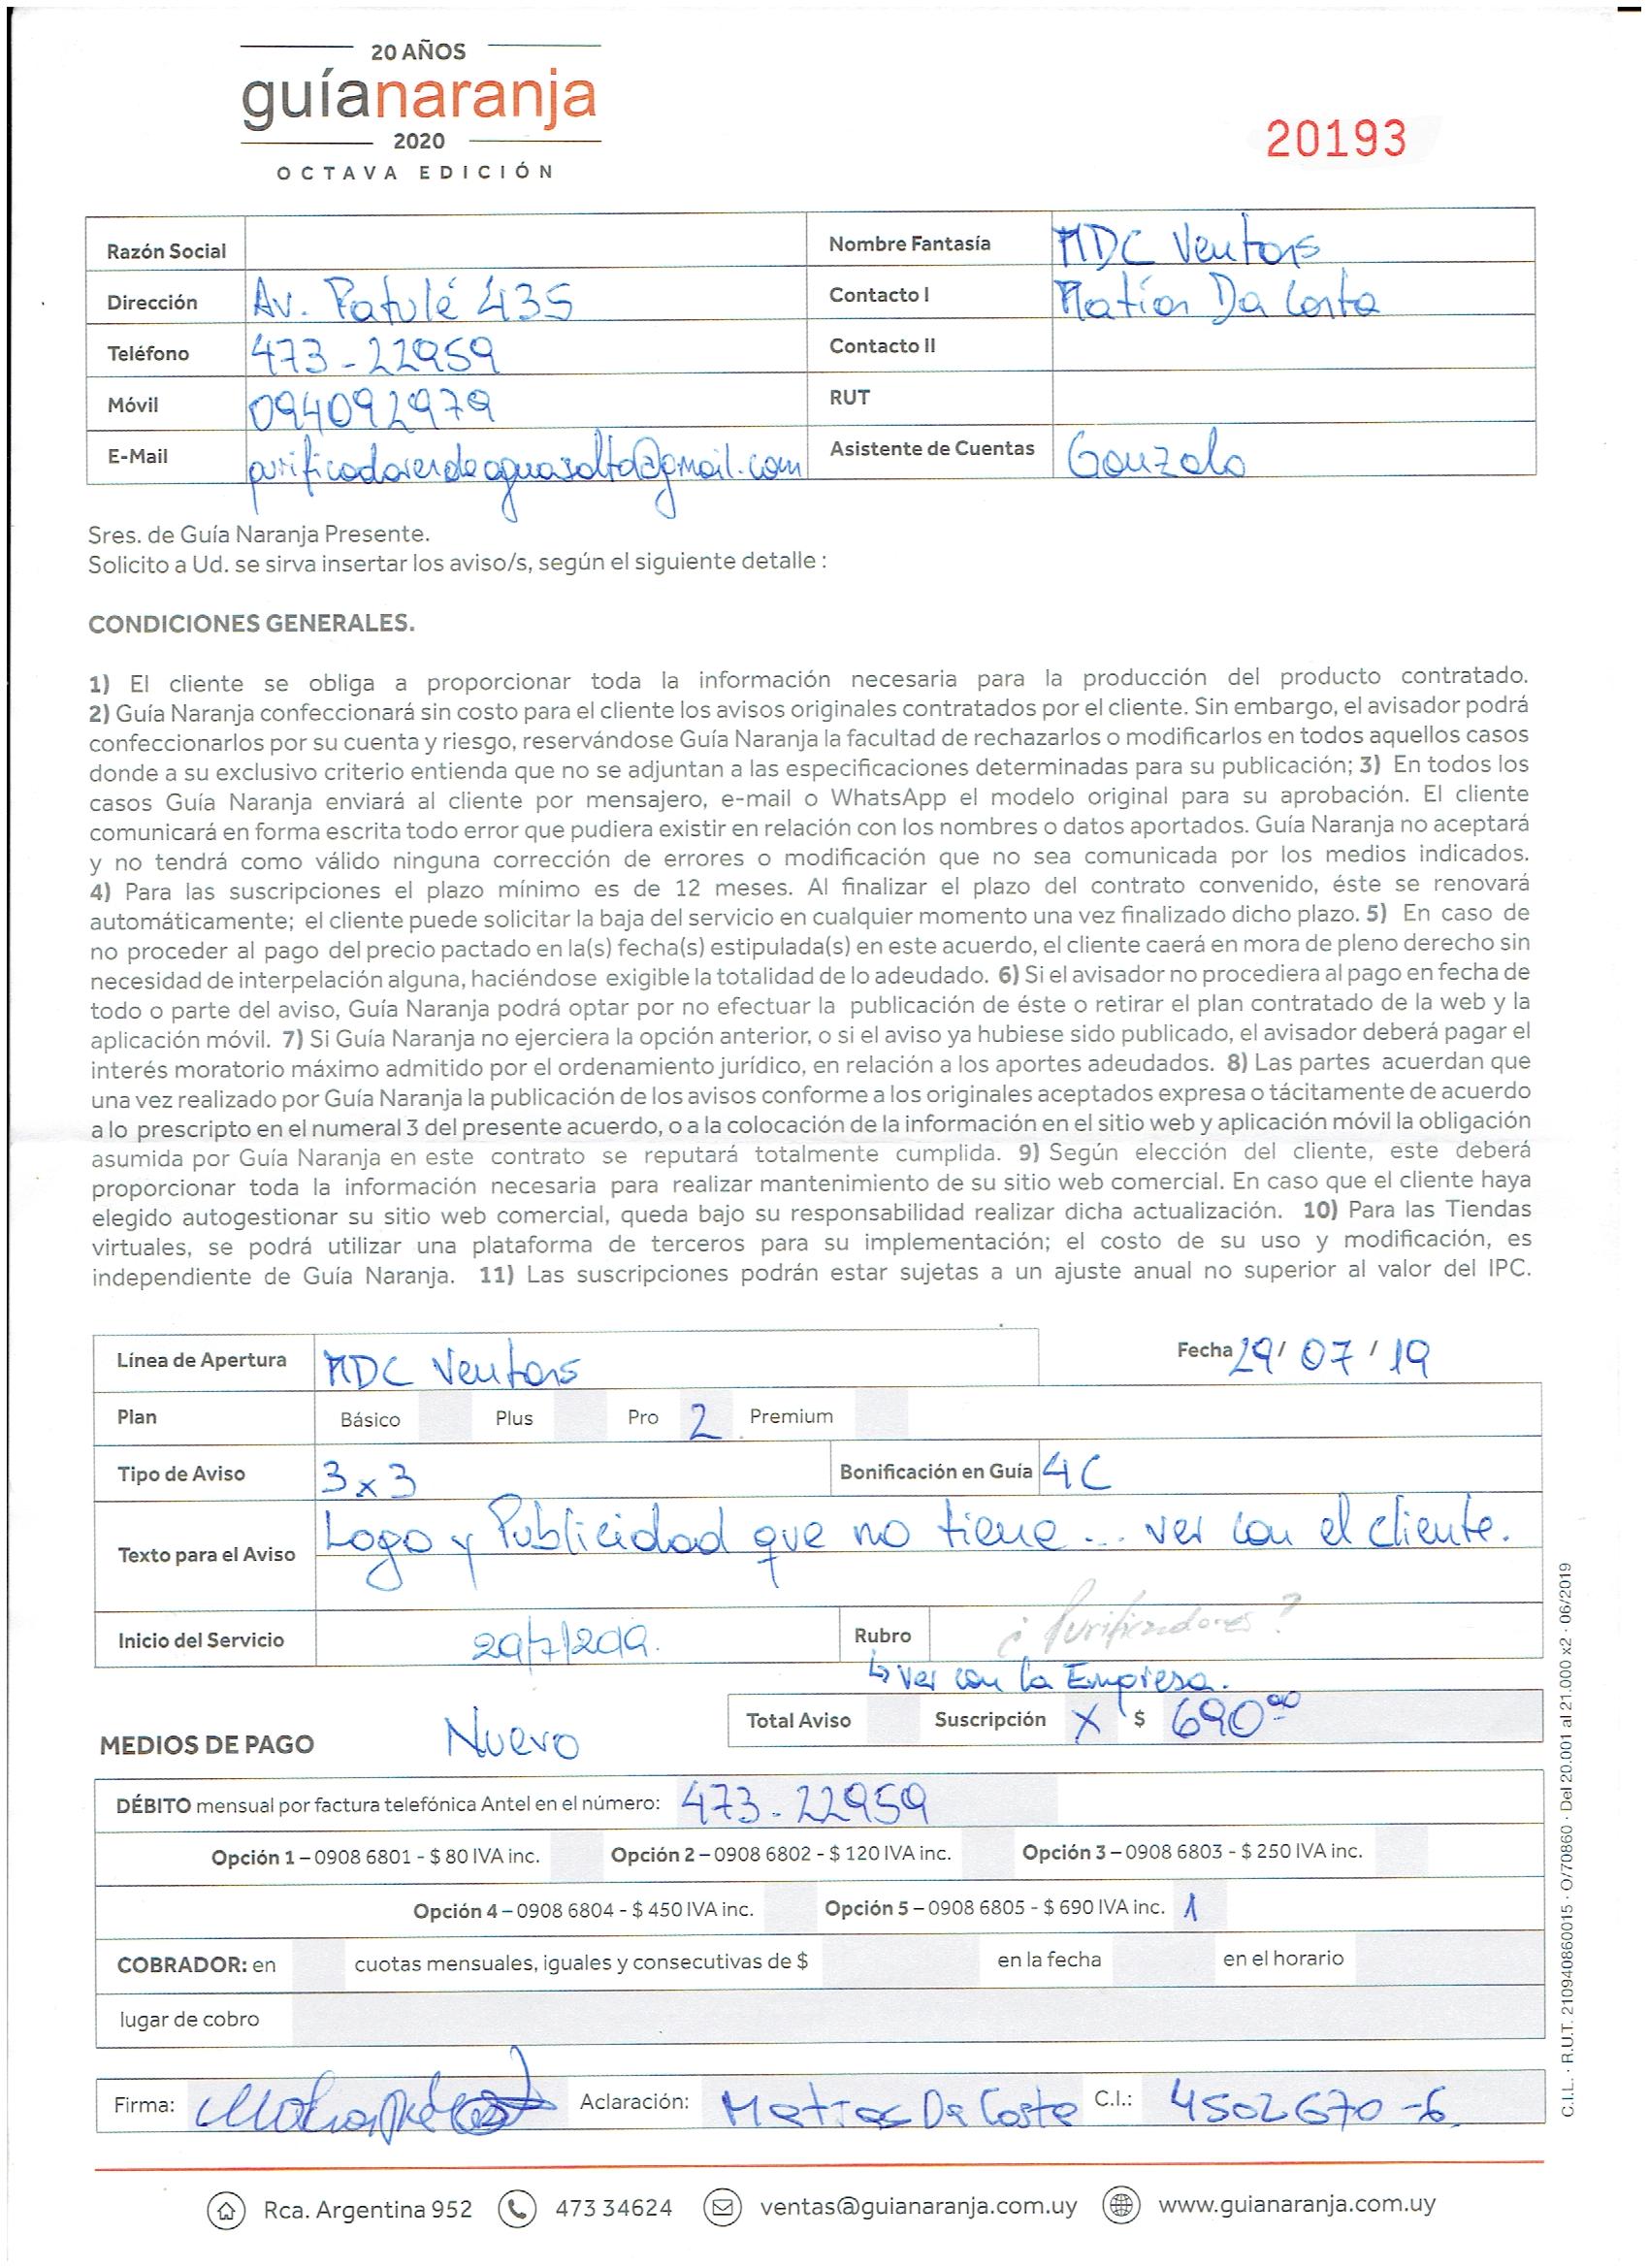 20 AÑOS
guíanaranja
2020
OCTAVA EDICIÓN
20193
Razón Social
Nombre Fantasía MDC Ventas
Dirección Av. Patulé 435
Contacto I Matías Da Costa
Teléfono 473-22959
Contacto II
Móvil 094092979
RUT
E-Mail purificadoresdeaguasalto@gmail.com
Asistente de Cuentas Gonzalo
Sres. de Guía Naranja Presente.
Solicito a Ud. se sirva insertar los aviso/s, según el siguiente detalle :
CONDICIONES GENERALES.
1) El cliente se obliga a proporcionar toda la información necesaria para la producción del producto contratado.
2) Guía Naranja confeccionará sin costo para el cliente los avisos originales contratados por el cliente. Sin embargo, el avisador podrá
confeccionarlos por su cuenta y riesgo, reservándose Guía Naranja la facultad de rechazarlos o modificarlos en todos aquellos casos
donde a su exclusivo criterio entienda que no se adjuntan a las especificaciones determinadas para su publicación; 3) En todos los
casos Guía Naranja enviará al cliente por mensajero, e-mail o WhatsApp el modelo original para su aprobación. El cliente
comunicará en forma escrita todo error que pudiera existir en relación con los nombres o datos aportados. Guía Naranja no aceptará
y no tendrá como válido ninguna corrección de errores o modificación que no sea comunicada por los medios indicados.
4) Para las suscripciones el plazo mínimo es de 12 meses. Al finalizar el plazo del contrato convenido, éste se renovará
automáticamente; el cliente puede solicitar la baja del servicio en cualquier momento una vez finalizado dicho plazo. 5) En caso de
no proceder al pago del precio pactado en la(s) fecha(s) estipulada(s) en este acuerdo, el cliente caerá en mora de pleno derecho sin
necesidad de interpelación alguna, haciéndose exigible la totalidad de lo adeudado. 6) Si el avisador no procediera al pago en fecha de
todo o parte del aviso, Guía Naranja podrá optar por no efectuar la publicación de éste o retirar el plan contratado de la web y la
aplicación móvil. 7) Si Guía Naranja no ejerciera la opción anterior, o si el aviso ya hubiese sido publicado, el avisador deberá pagar el
interés moratorio máximo admitido por el ordenamiento jurídico, en relación a los aportes adeudados. 8) Las partes acuerdan que
una vez realizado por Guía Naranja la publicación de los avisos conforme a los originales aceptados expresa o tácitamente de acuerdo
a lo prescripto en el numeral 3 del presente acuerdo, o a la colocación de la información en el sitio web y aplicación móvil la obligación
asumida por Guía Naranja en este contrato se reputará totalmente cumplida. 9) Según elección del cliente, este deberá
proporcionar toda la información necesaria para realizar mantenimiento de su sitio web comercial. En caso que el cliente haya
elegido autogestionar su sitio web comercial, queda bajo su responsabilidad realizar dicha actualización. 10) Para las Tiendas
virtuales, se podrá utilizar una plataforma de terceros para su implementación; el costo de su uso y modificación, es
independiente de Guía Naranja. 11) Las suscripciones podrán estar sujetas a un ajuste anual no superior al valor del IPC.
Línea de Apertura MDC Ventas
Fecha 29/ 07 / 19
Plan Básico Plus Pro 2 Premium
Tipo de Aviso 3x3
Bonificación en Guía 4C
Texto para el Aviso Logo y Publicidad que no tiene... ver con el cliente.
Inicio del Servicio 29/7/2019.
Rubro ¿Purificadores?
↳ ver con la Empresa.
Total Aviso Suscripción X $ 690,00
MEDIOS DE PAGO Nuevo
DÉBITO mensual por factura telefónica Antel en el número: 473-22959
Opción 1 – 0908 6801 - $ 80 IVA inc. Opción 2 – 0908 6802 - $ 120 IVA inc. Opción 3 – 0908 6803 - $ 250 IVA inc.
Opción 4 – 0908 6804 - $ 450 IVA inc. Opción 5 – 0908 6805 - $ 690 IVA inc. 1
COBRADOR: en cuotas mensuales, iguales y consecutivas de $ en la fecha en el horario
lugar de cobro
Firma: Aclaración: Matias Da Costa C.I.: 4502670-6
Rca. Argentina 952 473 34624 ventas@guianaranja.com.uy www.guianaranja.com.uy
C.I.L. · R.U.T. 210940860015 · O/70860 · Del 20.001 al 21.000 x2 · 06/2019